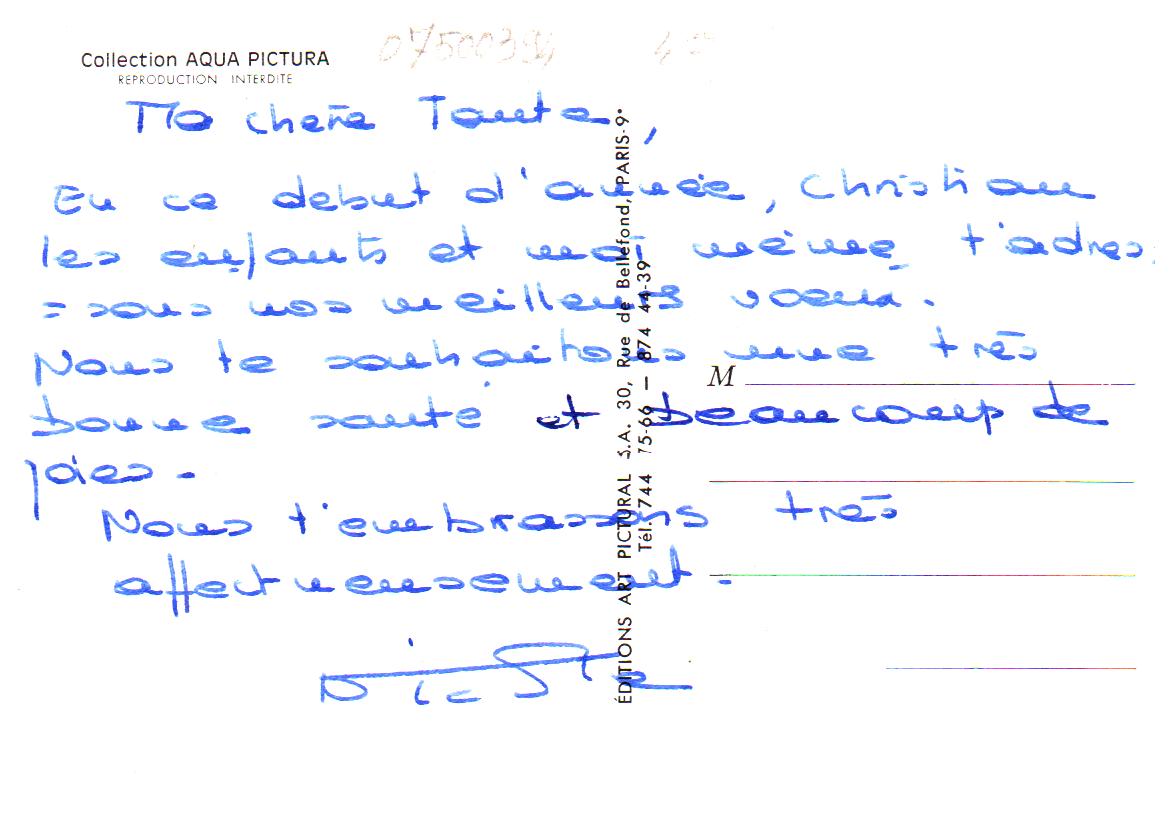 Collection AQUA PICTURA
REPRODUCTION INTERDITE
07500394
Ma chère Tante,
En ce debut d'année, Christian
les enfants et moi même, t'adres
=sons nos meilleurs voeux.
Nous te souhaitons une très
bonne santé et beaucoup de
joies.
Nous t'embrassons très
affectueusement.
M
ÉDITIONS ART PICTURAL S.A. 30, Rue de Bellefond, PARIS-9e
Tél. 744 75-66 — 874 44-39